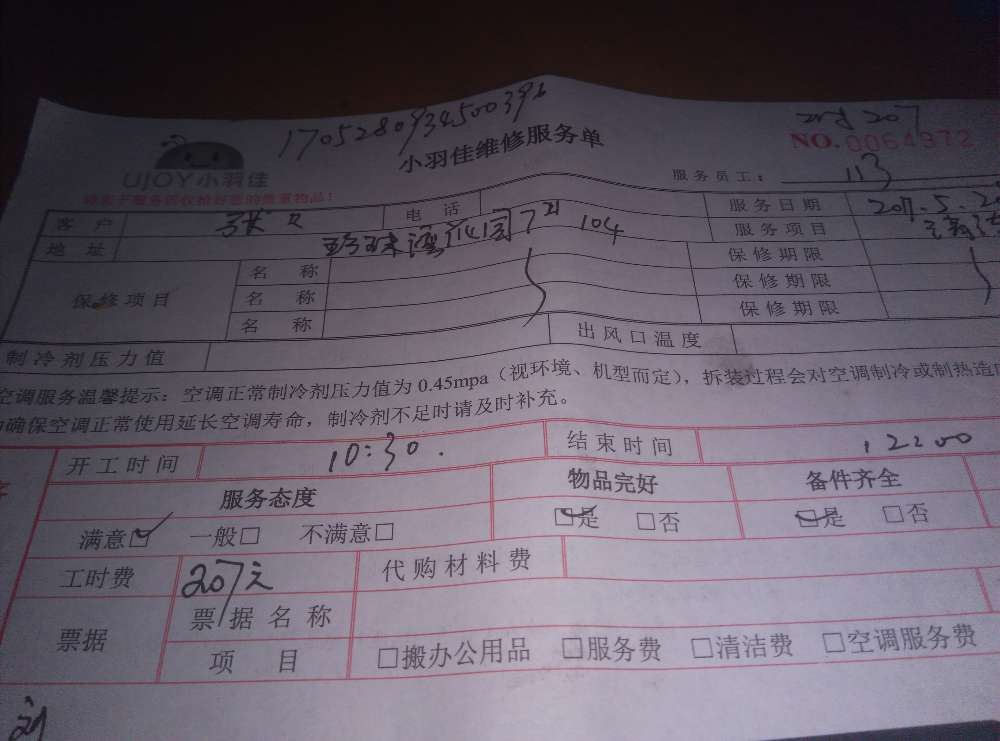 17052809345003
小羽佳维修服务单
207
NO.0064972
UJOY小羽佳
服务员工： 113
客户 张 电话 服务日期 2017.5.2
地址 珍珠湾花园7 104 服务项目
保修项目 名称 保修期限
名称 保修期限
名称 保修期限
制冷剂压力值 出风口温度
空调服务温馨提示：空调正常制冷剂压力值为 0.45mpa（视环境、机型而定），拆装过程会对空调制冷或制热造
确保空调正常使用延长空调寿命，制冷剂不足时请及时补充。
开工时间 10:30. 结束时间 12:00
服务态度 物品完好 备件齐全
满意☑ 一般□ 不满意□ ☑是 □否 ☑是 □否
工时费 207元 代购材料费
票据 票据名称
项目 □搬办公用品 □服务费 □清洁费 □空调服务费
刘